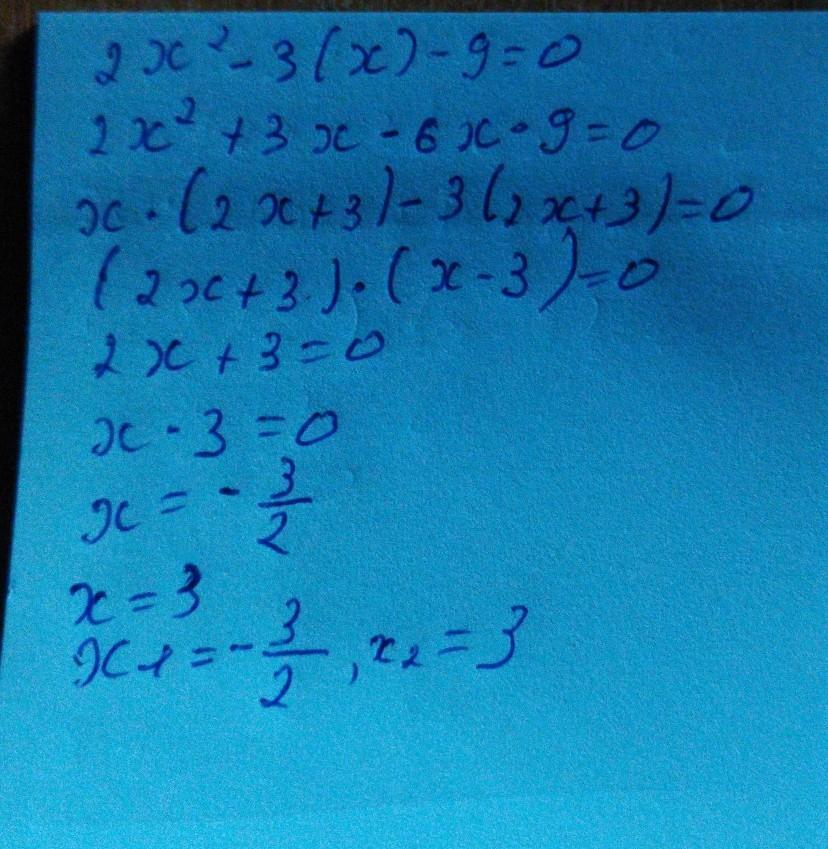 2x² - 3(x) - 9 = 0
2x² + 3x - 6x - 9 = 0
x · (2x + 3) - 3(2x + 3) = 0
(2x + 3) · (x - 3) = 0
2x + 3 = 0
x - 3 = 0
x = - 3/2
x = 3
x₁ = - 3/2, x₂ = 3